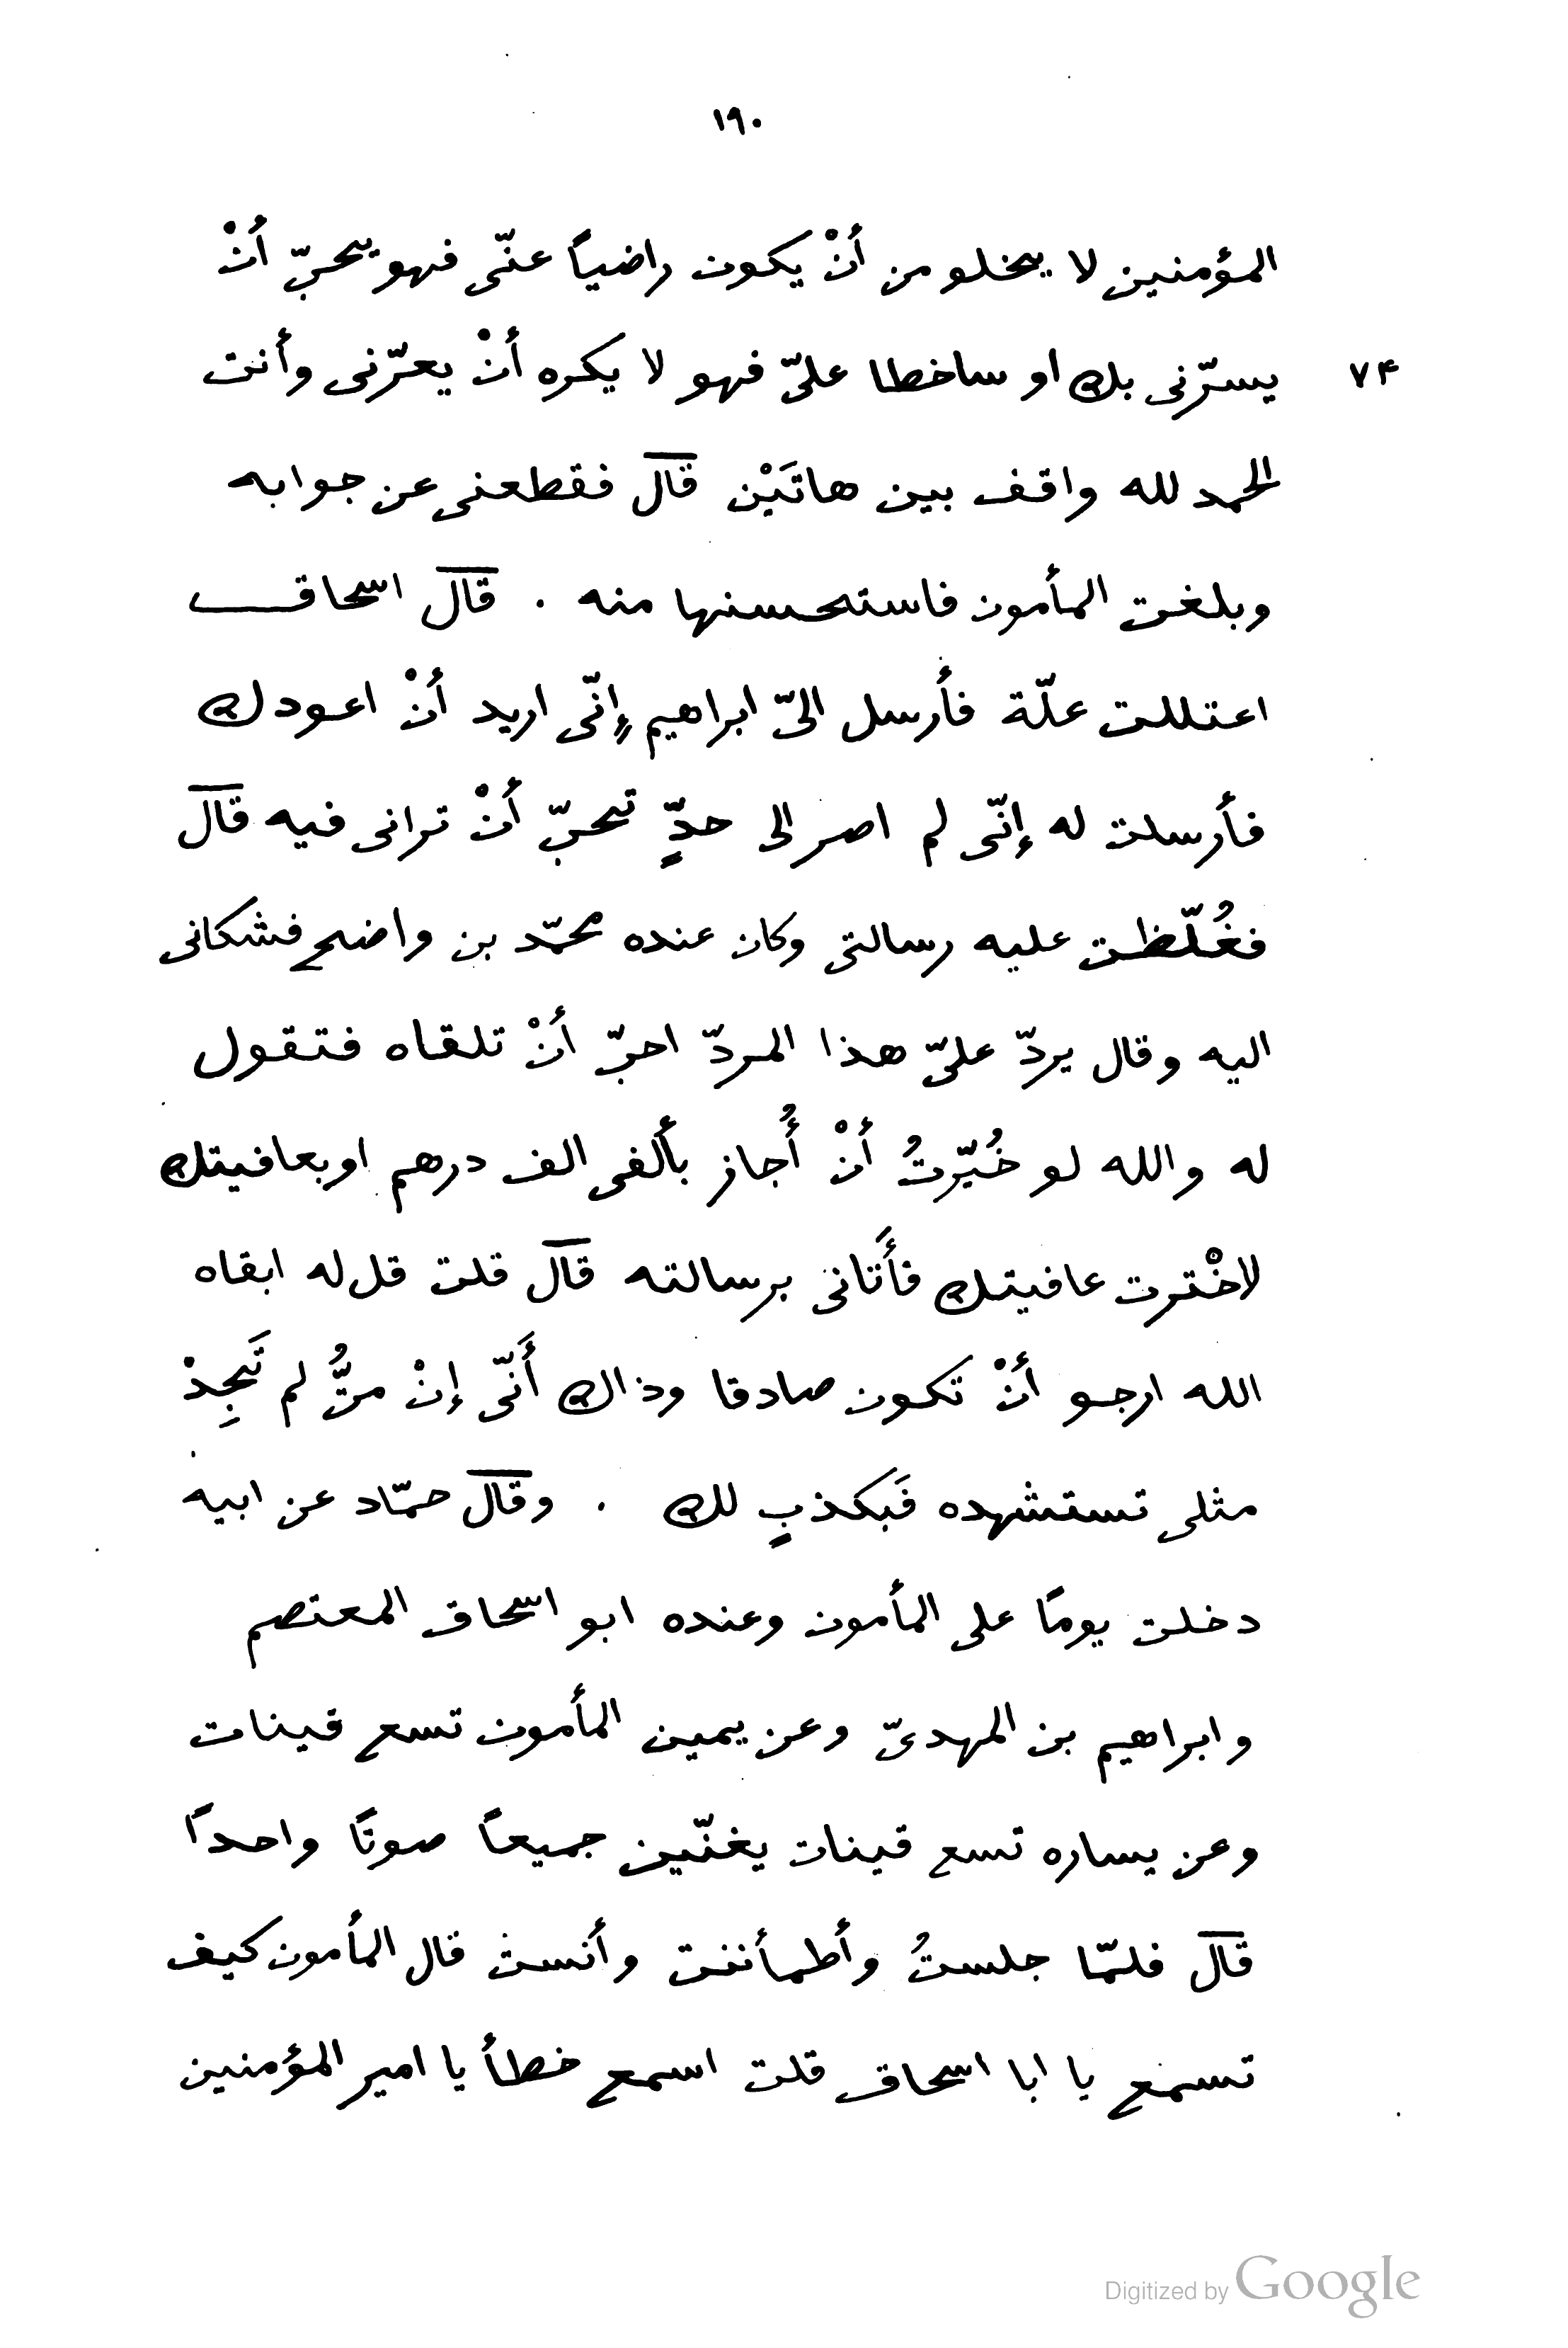 ١٩٠
المؤمنين لا يخلو من أنْ يكون راضياً عنّى فهو يحبّ أنْ
يسرّنى بك او ساخطا علىّ فهو لا يكره أنْ يعرّنى وأنت ٧۴
الحمد لله واقف بين هاتَيْن قال فقطعنى عن جوابه
وبلغت المأمون فاستحسنها منه . قال اسحاق
اعتللت علّة فأرسل الىّ ابراهيم إنّى اريد أنْ اعودك
فأرسلت له إنّى لم اصر الى حدٍّ تحبّ أنْ ترانى فيه قال
فغُلّظت عليه رسالتى وكان عنده محمّد بن واضح فشكانى
اليه وقال يردّ علىّ هذا المردّ احبّ أنْ تلقاه فتقول
له والله لو خُيّرتُ أنْ أُجاز بألفى الف درهم او بعافيتك
لاخْترت عافيتك فأَتانى برسالته قال قلت قل له ابقاه
الله ارجو أنْ تكون صادقا وذاك أَنّى إنْ متُّ لم تَجِدْ
مثلى تستشهده فَبكذبٍ لك . وقال حمّاد عن ابيه
دخلت يومًا على المأمون وعنده ابو اسحاق المعتصم
وابراهيم بن المهدىّ وعن يمين المأمون تسع قينات
وعن يساره تسع قينات يغنّين جميعاً صوتًا واحداً
قال فلمّا جلستُ وأطمأننت وأنست قال المأمون كيف
تسمع يا ابا اسحاق قلت اسمع خطأ يا امير المؤمنين
Digitized by Google